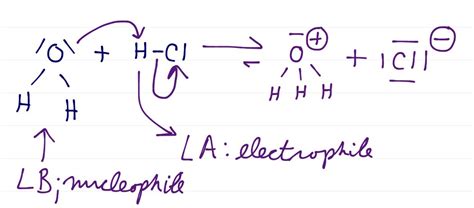 O + H-Cl ⇌ O⊕ + Cl ⊖
H H H H H
LA: electrophile
LB; nucleophile